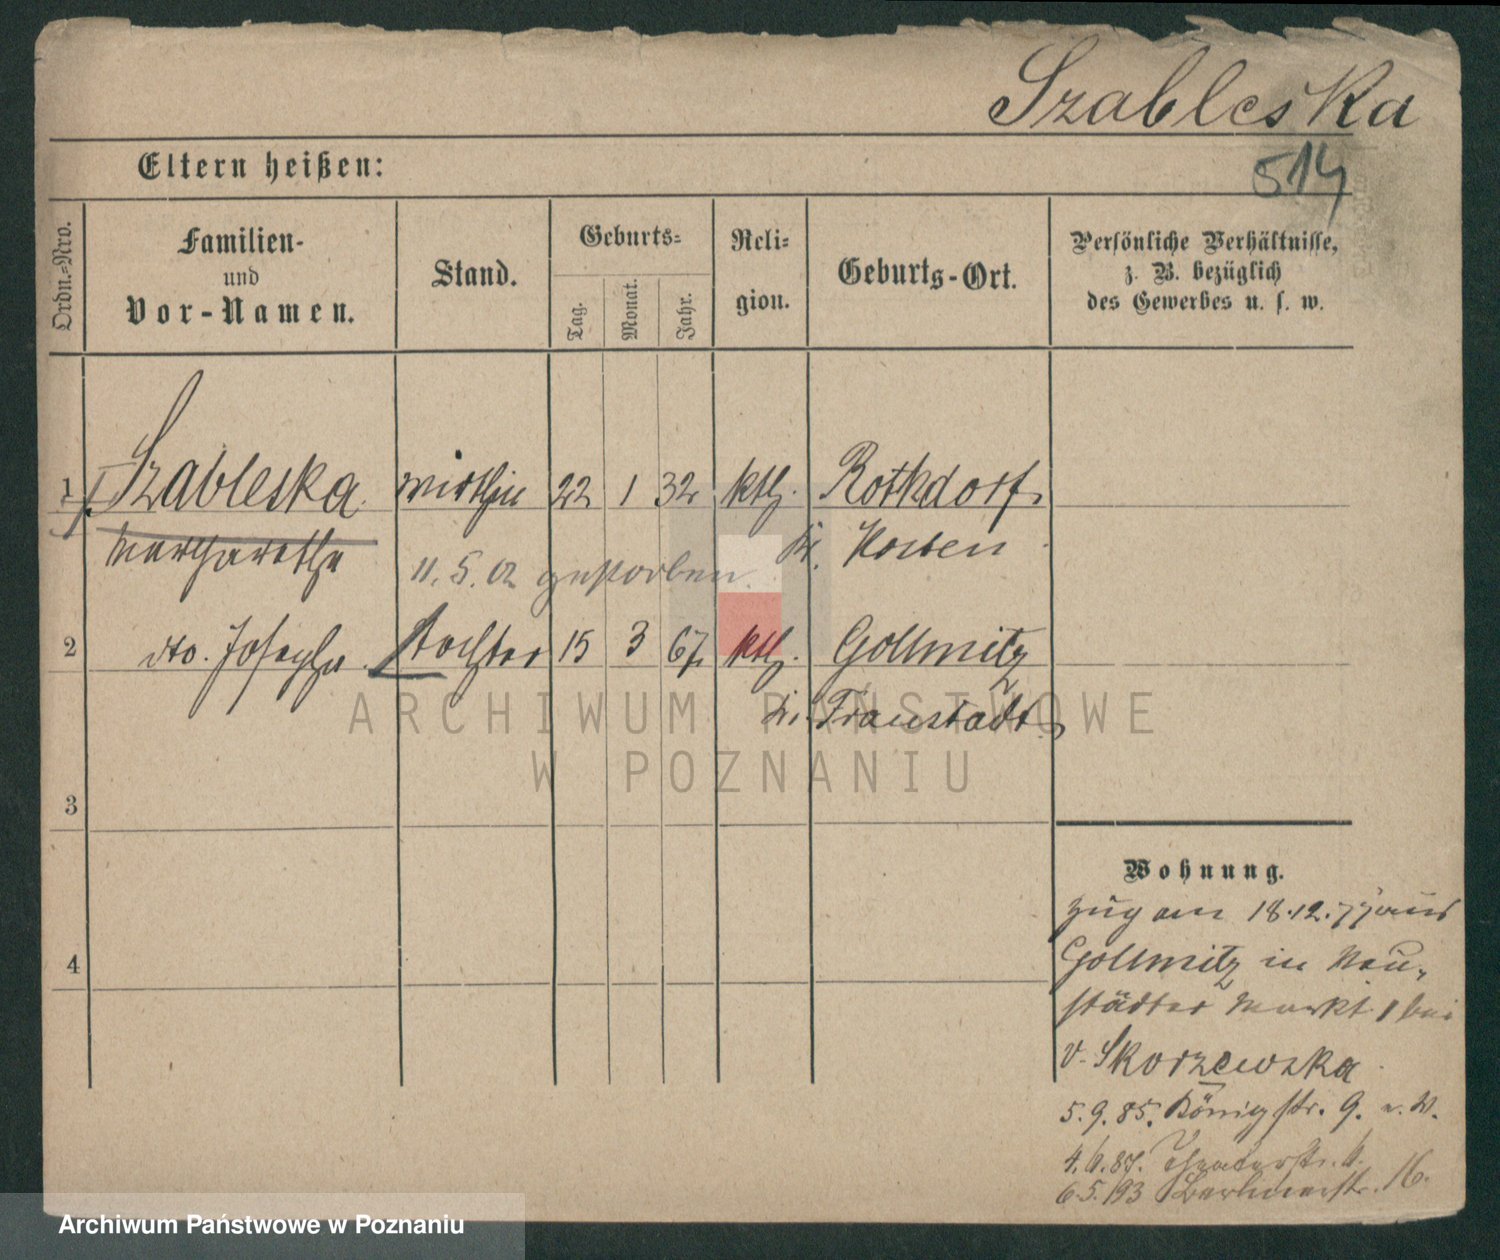 Szableska
514
Eltern heißen:
Ordn.-Nro.
Familien-
und
Vor-Namen.
Stand.
Geburts-
Tag.
Monat.
Jahr.
Reli-
gion.
Geburts-Ort.
Persönliche Verhältnisse,
z. B. bezüglich
des Gewerbes u. s. w.
1 Szableska Wirthin 22 1 32 kth. Rothdorf
Margarethe Kr. Kosten
11. 5. 02 gestorben.
2 dto. Josepha Tochter 15 3 67 kth. Gollmitz
Kr. Fraustadt
3
4
Wohnung.
Zug am 18.12.77 aus
Gollmitz in Neu-
städter Markt 1 bei
v. Skorzewska
5.9.85. Königstr. 9.
4.6.87. Theaterstr. 6.
6.5.193 Berlinerstr. 16.
ARCHIWUM PAŃSTWOWE
W POZNANIU
Archiwum Państwowe w Poznaniu